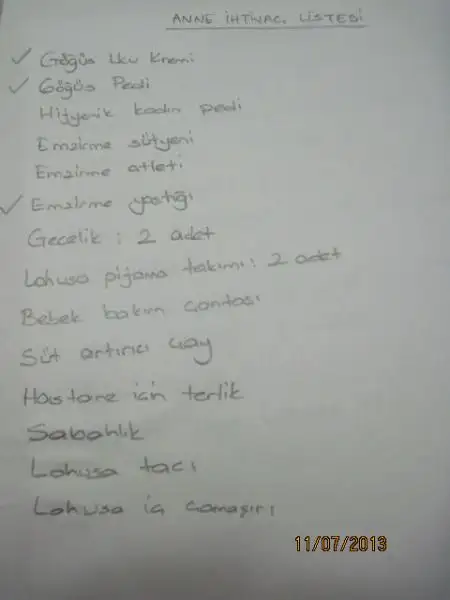 ANNE İHTİYAÇ LİSTESİ
✓ Göğüs Ucu Kremi
✓ Göğüs Pedi
Hijyenik kadın pedi
Emzirme sütyeni
Emzirme atleti
✓ Emzirme yastığı
Gecelik : 2 adet
Lohusa pijama takımı : 2 adet
Bebek bakım çantası
Süt artırıcı çay
Hastane için terlik
Sabahlık
Lohusa tacı
Lohusa iç çamaşırı
11/07/2013